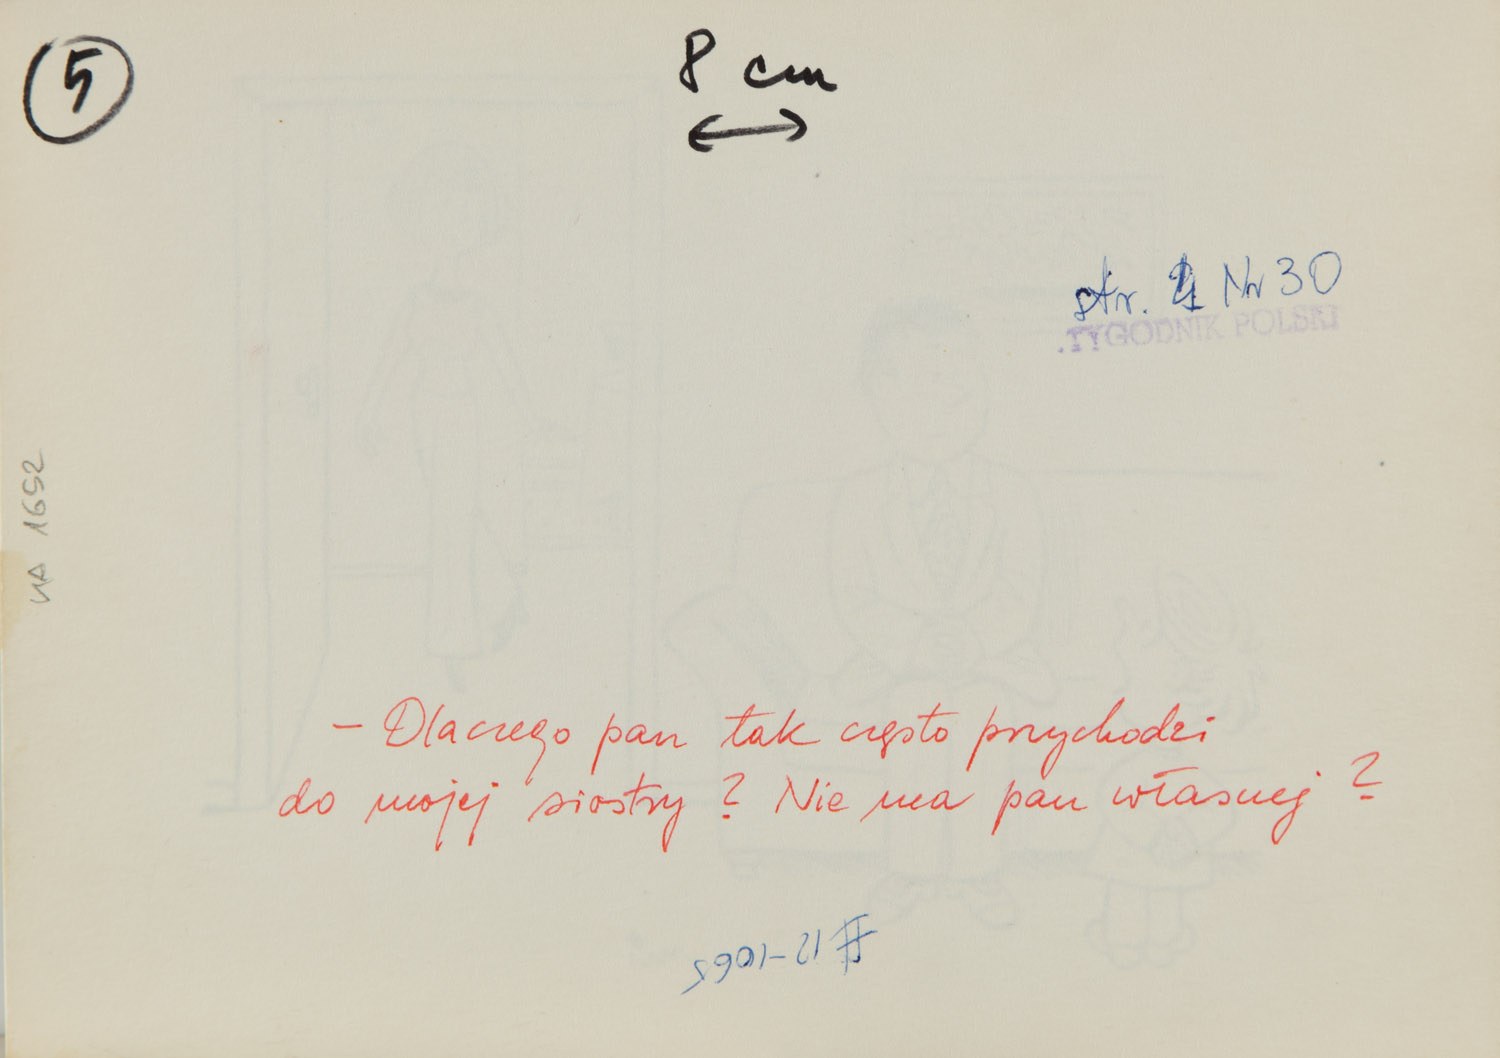 5
8 cm
str. 4 Nr 30
TYGODNIK POLSKI
UA 1652
– Dlaczego pan tak często przychodzi
do mojej siostry? Nie ma pan własnej?
# 12-1065